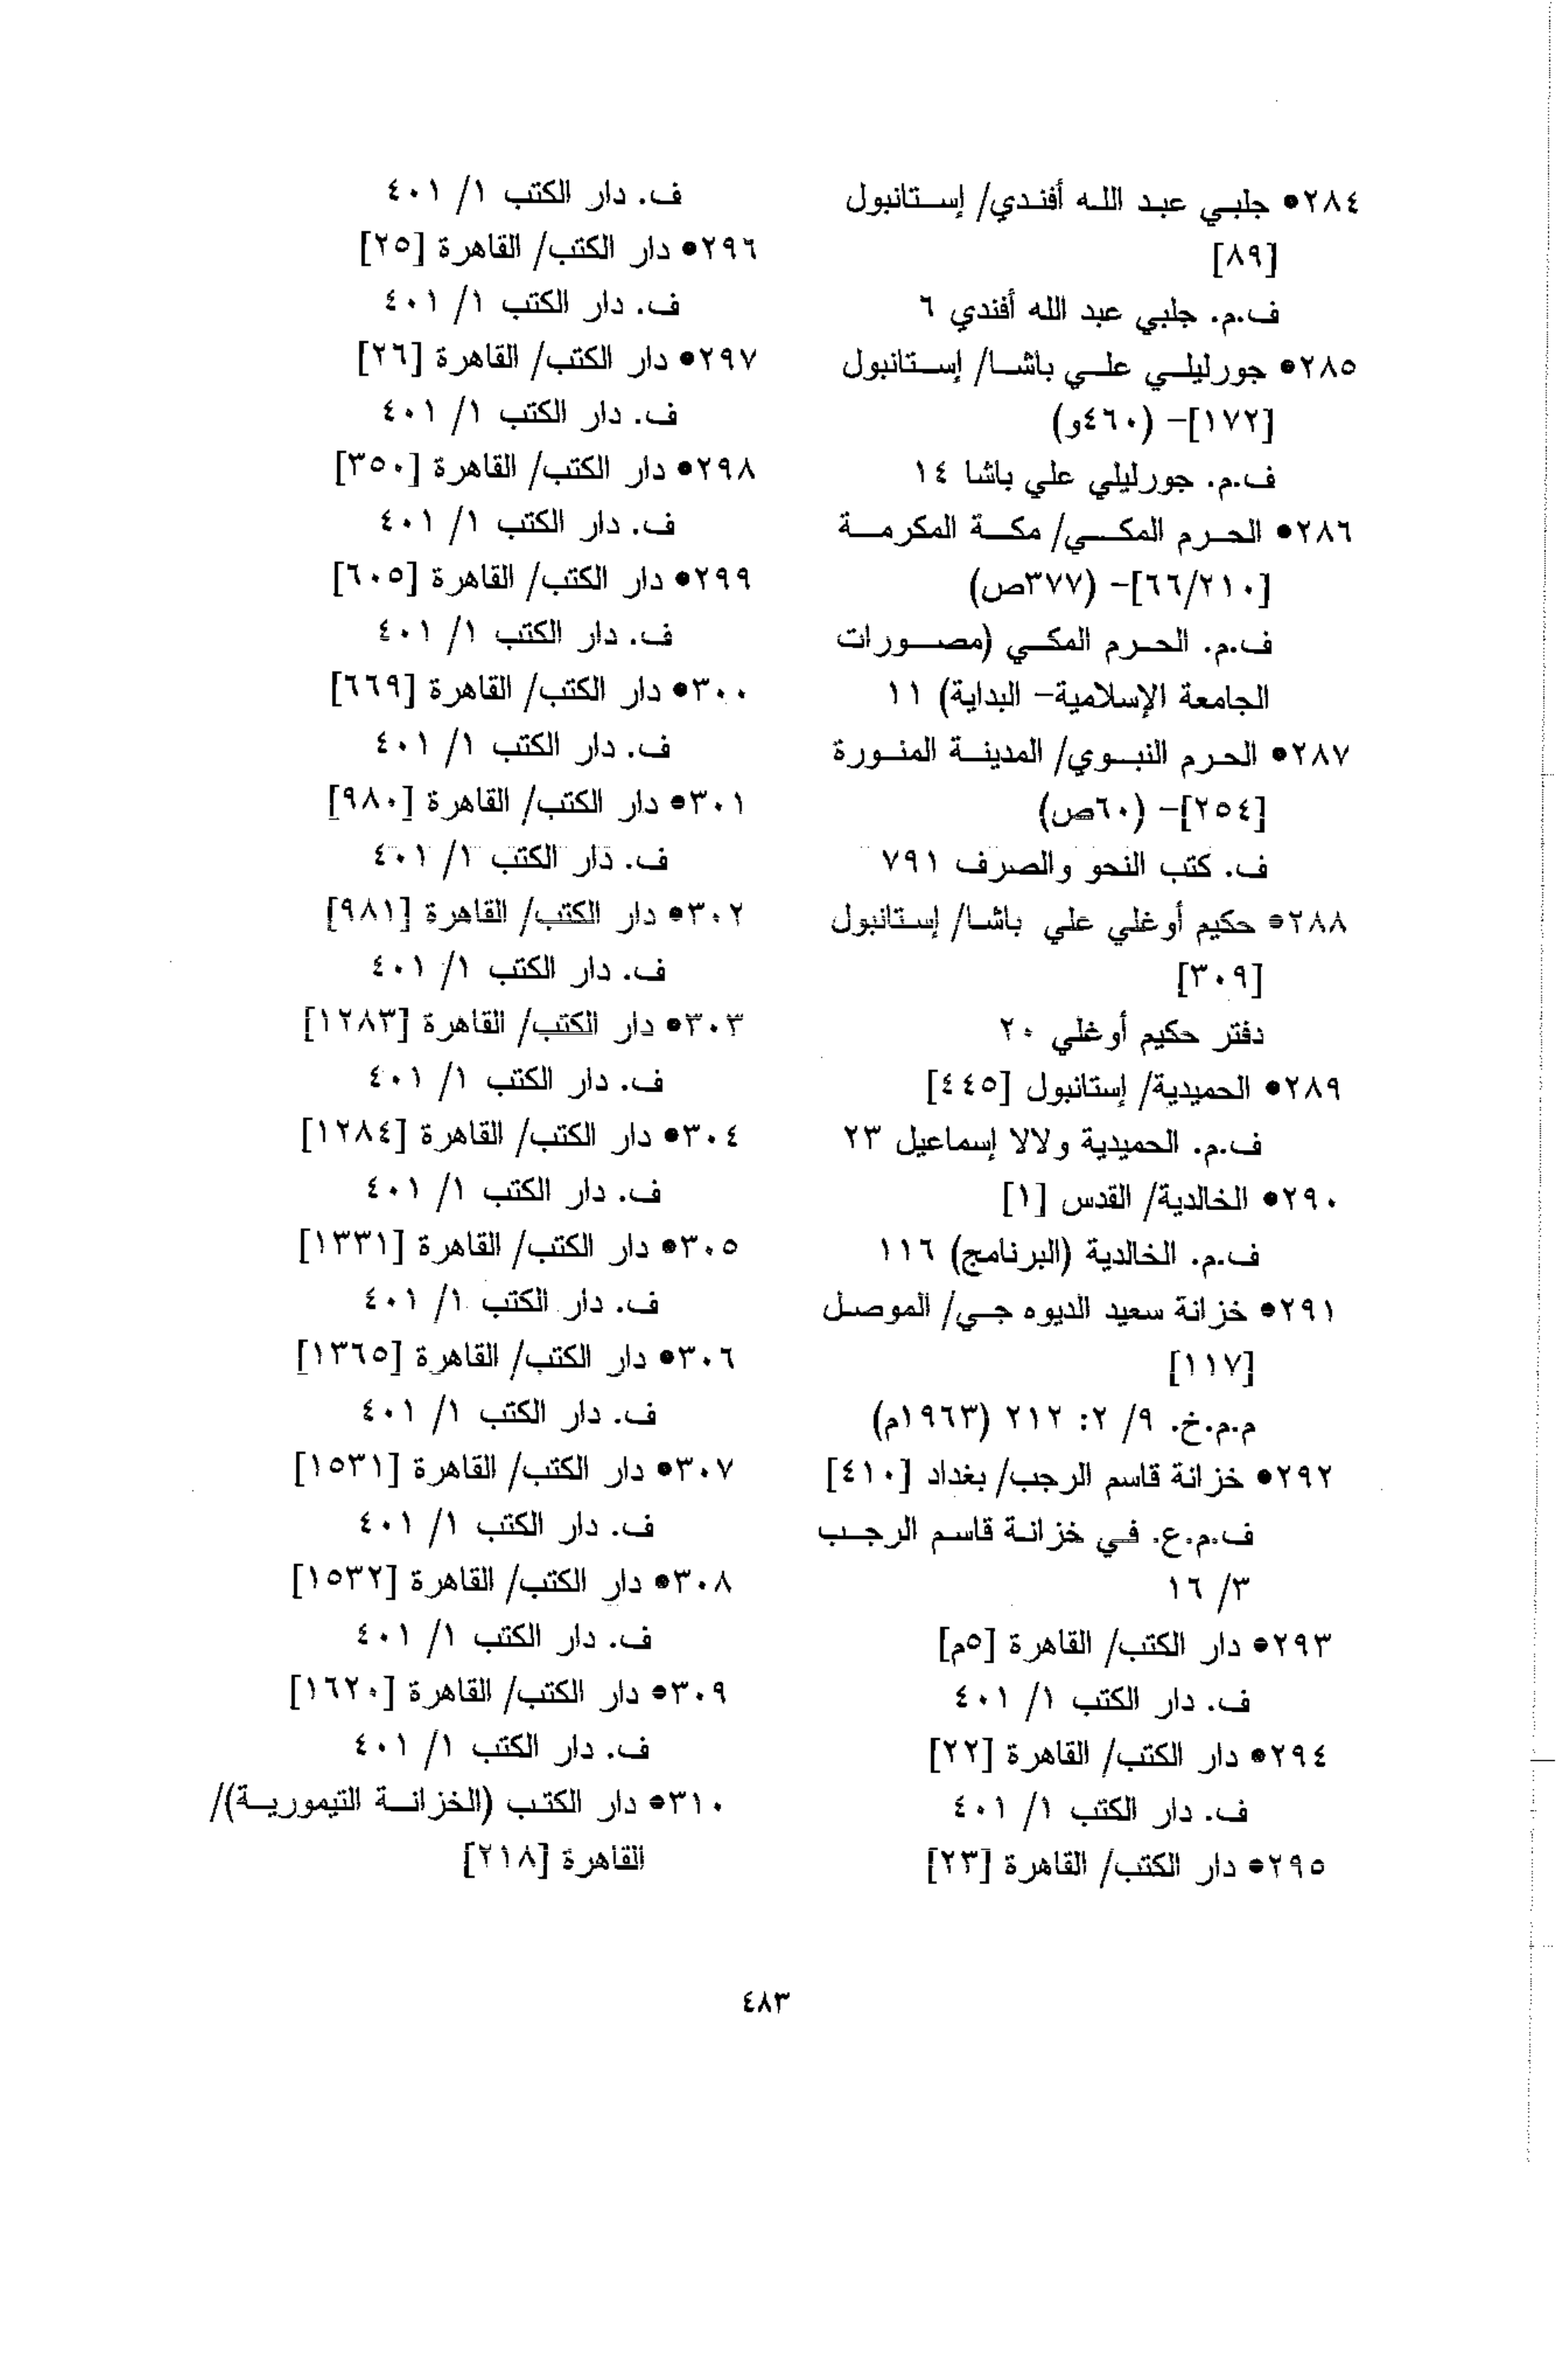 ٢٨٤● جلبي عبد الله أفندي/ إستانبول
[٨٩]
ف.م. جلبي عبد الله أفندي ٦
٢٨٥● جورليلي علي باشا/ إستانبول
[١٧٢]- (٤٦٠و)
ف.م. جورليلي علي باشا ١٤
٢٨٦● الحرم المكي/ مكة المكرمة
[٦٦/٢١٠]- (٣٧٧ص)
ف.م. الحرم المكي (مصورات
الجامعة الإسلامية- البداية) ١١
٢٨٧● الحرم النبوي/ المدينة المنورة
[٢٥٤]- (٦٠ص)
ف. كتب النحو والصرف ٧٩١
٢٨٨● حكيم أوغلي علي باشا/ إستانبول
[٣٠٩]
دفتر حكيم أوغلي ٢٠
٢٨٩● الحميدية/ إستانبول [٤٤٥]
ف.م. الحميدية ولالا إسماعيل ٢٣
٢٩٠● الخالدية/ القدس [١]
ف.م. الخالدية (البرنامج) ١١٦
٢٩١● خزانة سعيد الديوه جي/ الموصل
[١١٧]
م.م.خ. ٩/ ٢: ٢١٢ (١٩٦٣م)
٢٩٢● خزانة قاسم الرجب/ بغداد [٤١٠]
ف.م.ع. في خزانة قاسم الرجب
٣/ ١٦
٢٩٣● دار الكتب/ القاهرة [٥م]
ف. دار الكتب ١/ ٤٠١
٢٩٤● دار الكتب/ القاهرة [٢٢]
ف. دار الكتب ١/ ٤٠١
٢٩٥● دار الكتب/ القاهرة [٢٣]
ف. دار الكتب ١/ ٤٠١
٢٩٦● دار الكتب/ القاهرة [٢٥]
ف. دار الكتب ١/ ٤٠١
٢٩٧● دار الكتب/ القاهرة [٢٦]
ف. دار الكتب ١/ ٤٠١
٢٩٨● دار الكتب/ القاهرة [٣٥٠]
ف. دار الكتب ١/ ٤٠١
٢٩٩● دار الكتب/ القاهرة [٦٠٥]
ف. دار الكتب ١/ ٤٠١
٣٠٠● دار الكتب/ القاهرة [٦٦٩]
ف. دار الكتب ١/ ٤٠١
٣٠١● دار الكتب/ القاهرة [٩٨٠]
ف. دار الكتب ١/ ٤٠١
٣٠٢● دار الكتب/ القاهرة [٩٨١]
ف. دار الكتب ١/ ٤٠١
٣٠٣● دار الكتب/ القاهرة [١٢٨٣]
ف. دار الكتب ١/ ٤٠١
٣٠٤● دار الكتب/ القاهرة [١٢٨٤]
ف. دار الكتب ١/ ٤٠١
٣٠٥● دار الكتب/ القاهرة [١٣٣١]
ف. دار الكتب ١/ ٤٠١
٣٠٦● دار الكتب/ القاهرة [١٣٦٥]
ف. دار الكتب ١/ ٤٠١
٣٠٧● دار الكتب/ القاهرة [١٥٣١]
ف. دار الكتب ١/ ٤٠١
٣٠٨● دار الكتب/ القاهرة [١٥٣٢]
ف. دار الكتب ١/ ٤٠١
٣٠٩● دار الكتب/ القاهرة [١٦٢٠]
ف. دار الكتب ١/ ٤٠١
٣١٠● دار الكتب (الخزانة التيمورية)/
القاهرة [٢١٨]
٤٨٣